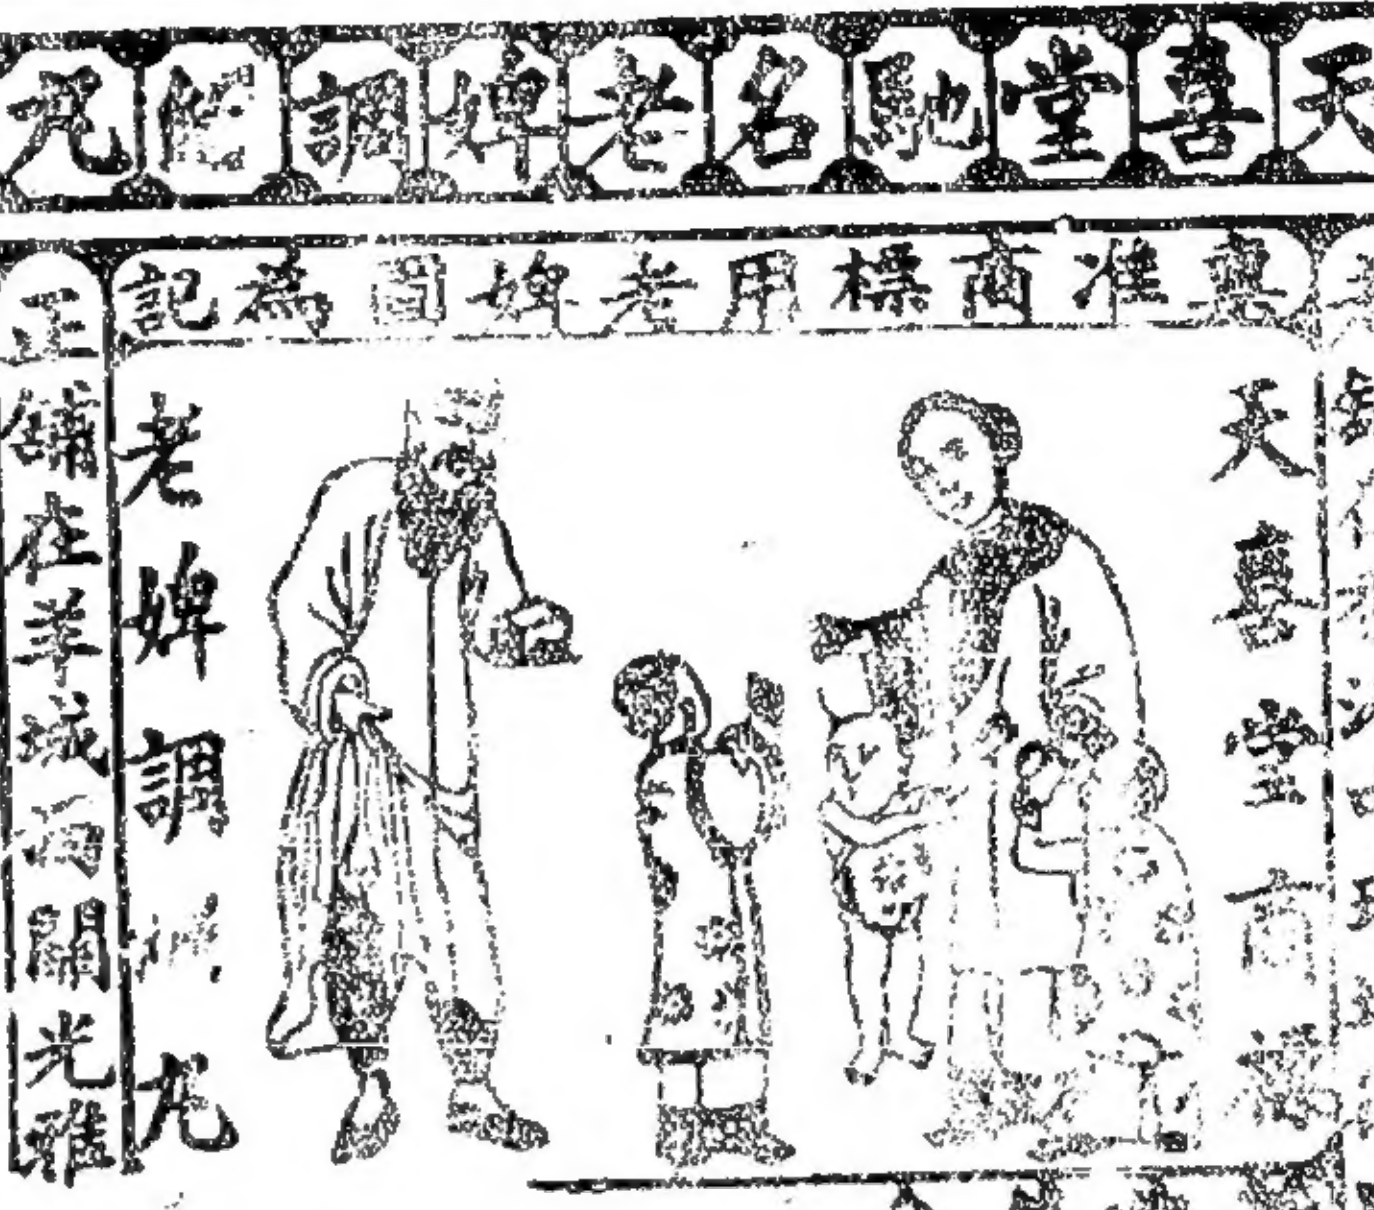 天喜堂馳名老婢調經丸
稟准商標用老婢圖為記
天喜堂商標
老婢調經丸
正舖在羊城西關光雅